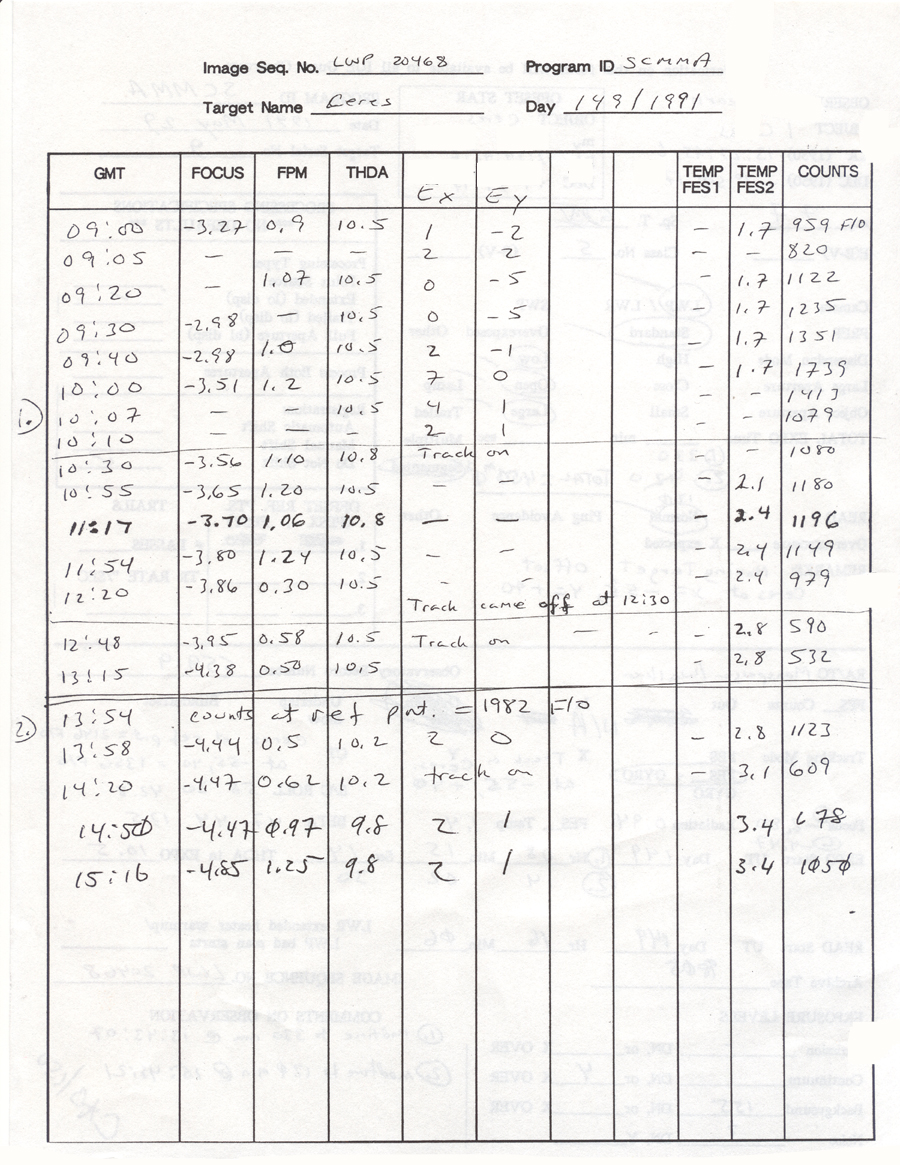 Image Seq. No. LWP 20468 Program ID SCMMA
Target Name Ceres Day 149/1991
GMT FOCUS FPM THDA Ex Ey TEMP FES1 TEMP FES2 COUNTS
09:00 -3.27 0.9 10.5 1 -2 - 1.7 959 F10
09:05 - - - 2 2 - - 820
09:20 - 1.07 10.5 0 -5 - 1.7 1122
09:30 -2.98 - 10.5 0 -5 - 1.7 1235
09:40 -2.98 1.0 10.5 2 -1 - 1.7 1351
10:00 -3.51 1.2 10.5 7 0 - 1.7 1739
1.) 10:07 - - 10.5 4 1 - - 1413
10:10 2 1 - - 1079
10:30 -3.56 1.10 10.8 Track on - - 1080
10:55 -3.65 1.20 10.5 - - - 2.1 1180
11:17 -3.70 1.06 10.8 - - - 2.4 1196
11:54 -3.80 1.24 10.5 - - - 2.4 1149
12:20 -3.86 0.30 10.5 - - - 2.4 979
Track came off at 12:30
12:48 -3.95 0.58 10.5 Track on - - - 2.8 590
13:15 -4.38 0.50 10.5 - 2.8 532
2.) 13:54 counts at ref pnt. = 1982 F10
13:58 -4.44 0.5 10.2 2 0 - 2.8 1123
14:20 -4.47 0.62 10.2 track on - 3.1 609
14:50 -4.47 0.97 9.8 2 1 3.4 678
15:16 -4.85 1.25 9.8 2 1 3.4 1050